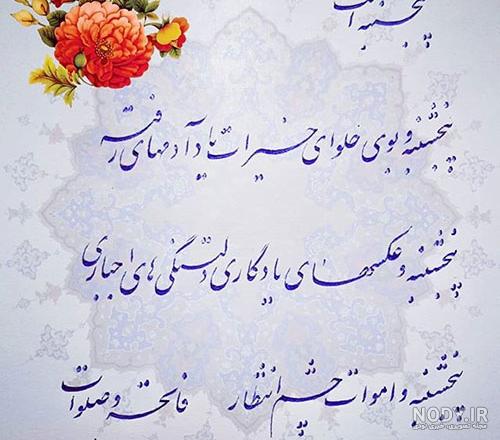 پنجشنبه است
پنجشنبه و بوی حلوای خیرات یاد آدمهای رفته
پنجشنبه و عکسهای یادگاری دلتنگی های اجباری
پنجشنبه و اموات چشم انتظار فاتحه و صلوات
NODY.IR